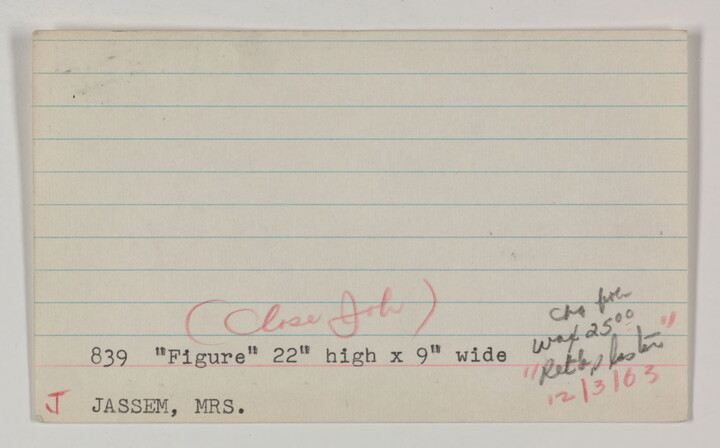 (Close Job)
839 "Figure" 22" high x 9" wide
Chg for
wax 25 00
"Ret'd plaster"
12/3/63
J JASSEM, MRS.